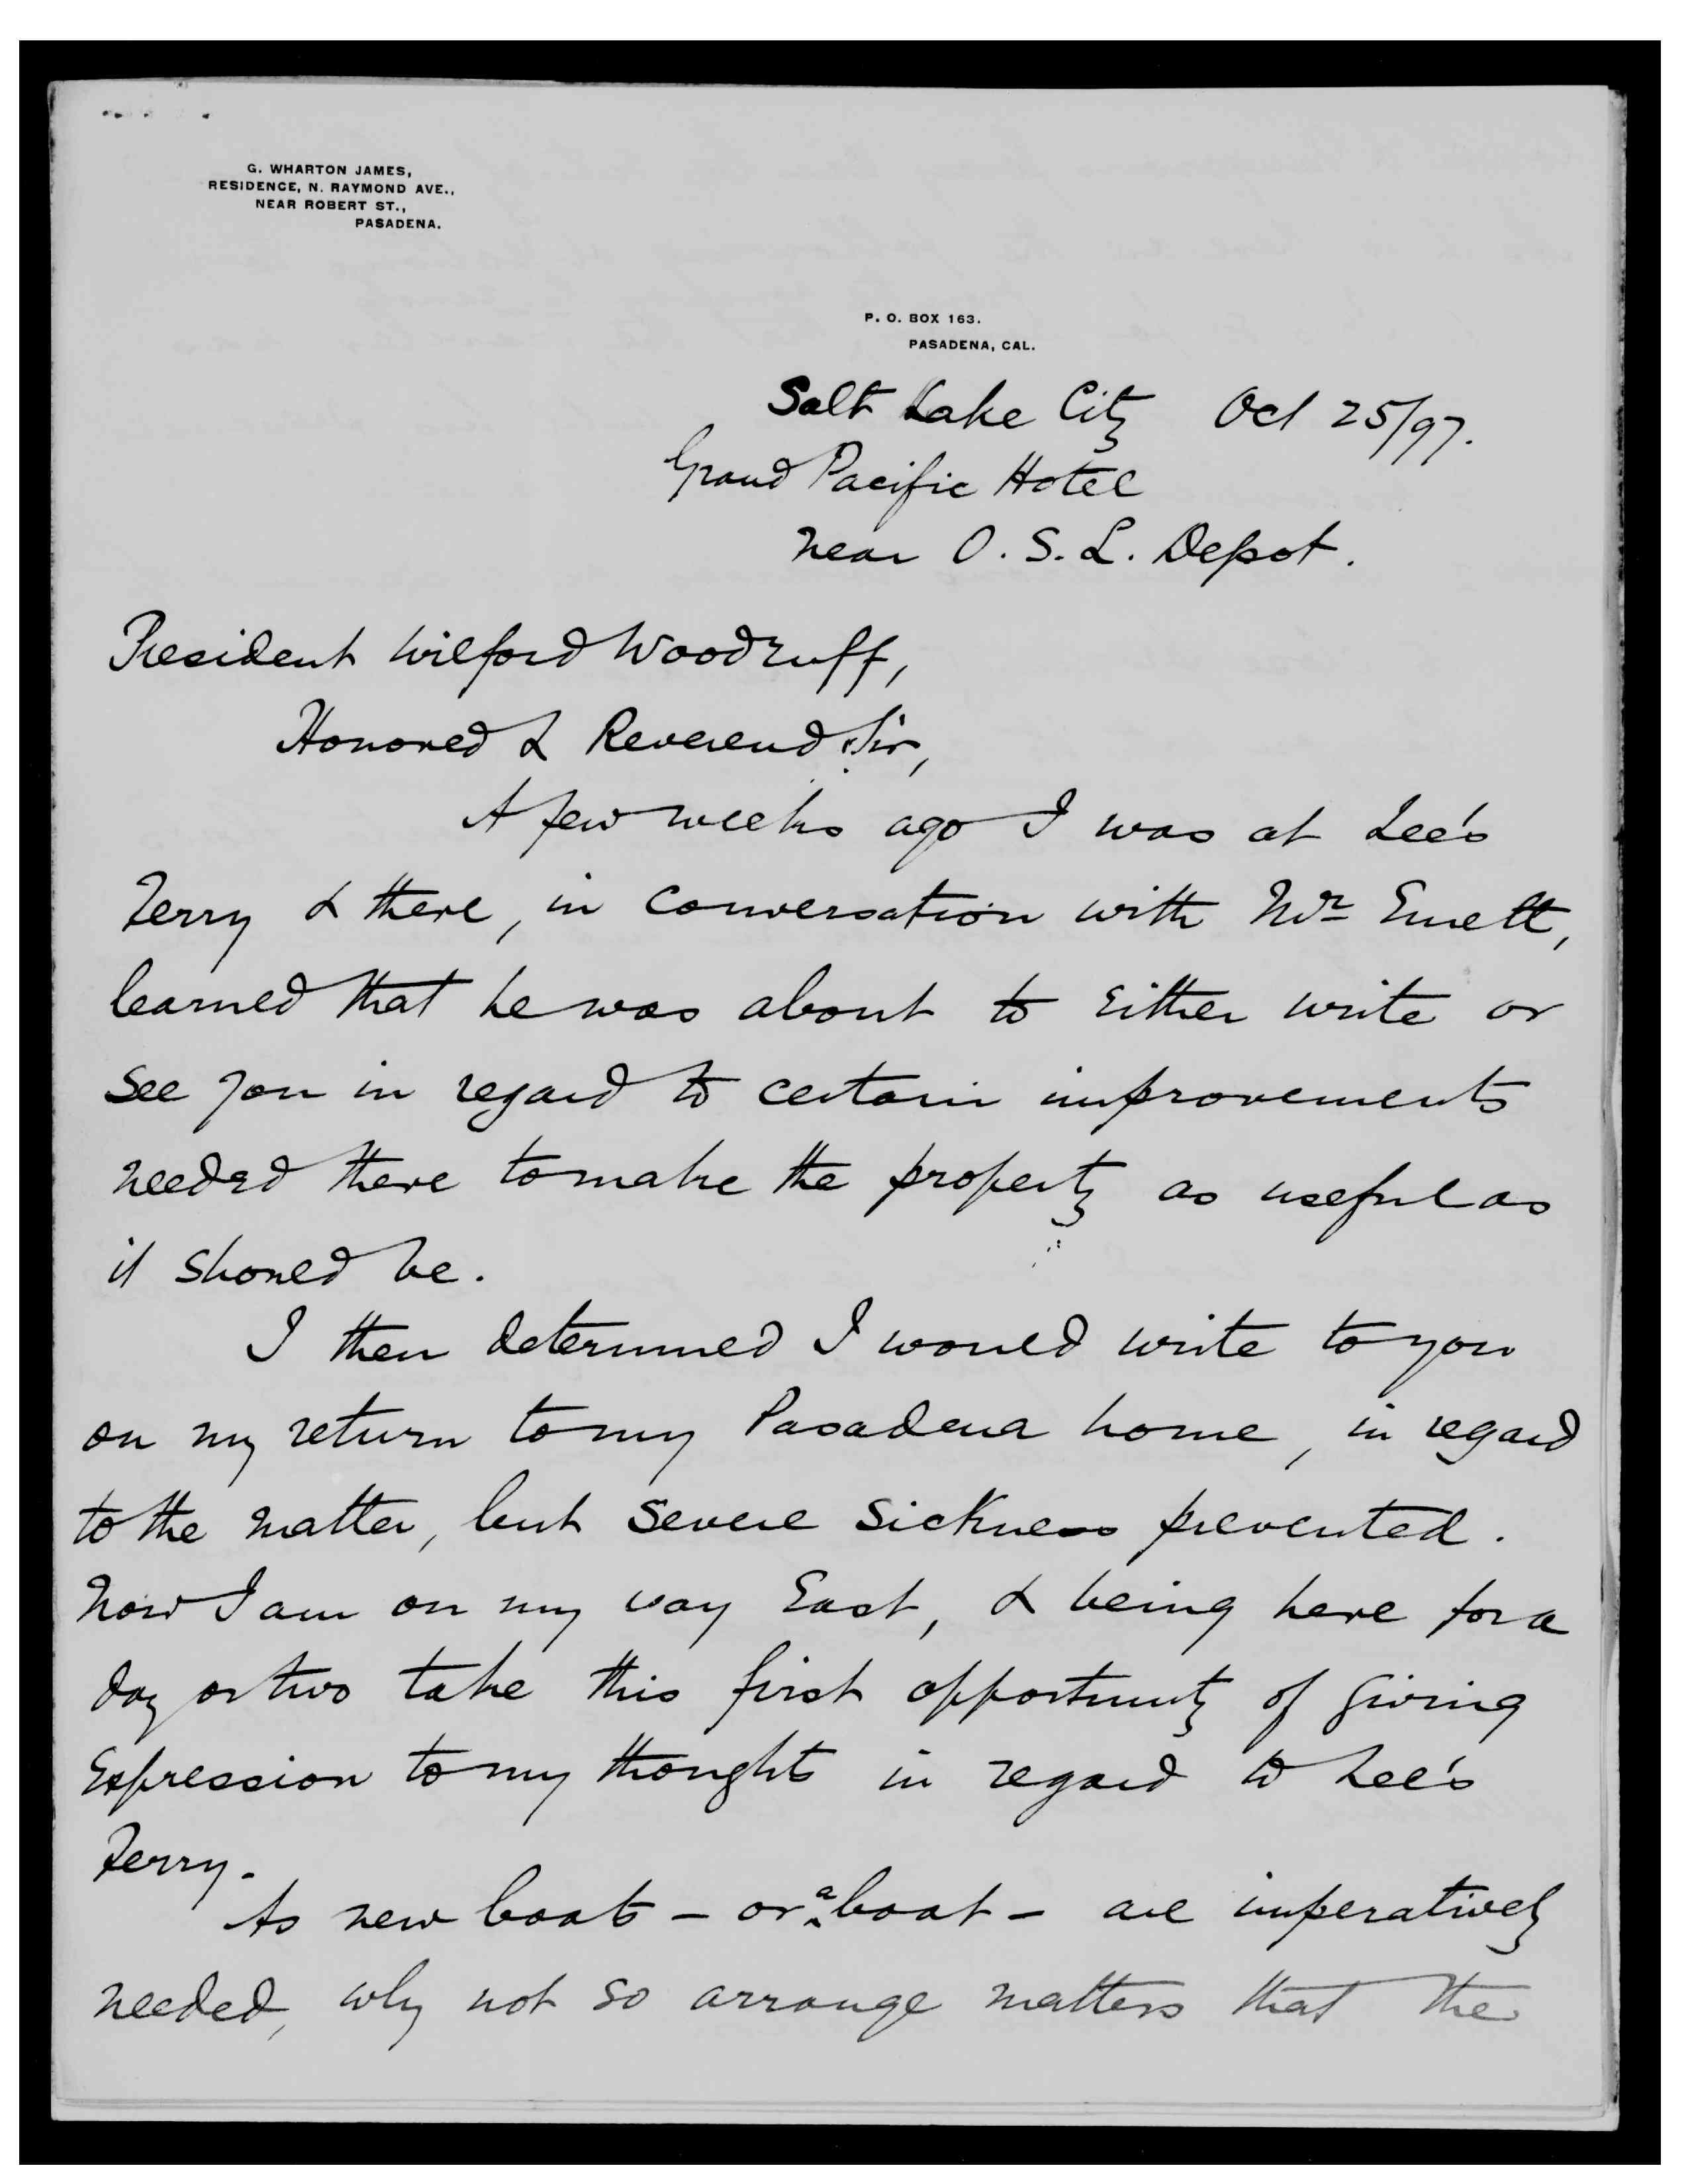 G. WHARTON JAMES,
RESIDENCE, N. RAYMOND AVE.,
NEAR ROBERT ST.,
PASADENA.
P. O. BOX 163.
PASADENA, CAL.
Salt Lake City Oct 25/97.
Grand Pacific Hotel
near O. S. L. Depot.
President Wilford Woodruff,
Honored & Reverend Sir,
A few weeks ago I was at Lee's
Ferry & there, in conversation with Mr Emett,
learned that he was about to either write or
see you in regard to certain improvements
needed there to make the property as useful as
it should be.
I then determined I would write to you
on my return to my Pasadena home, in regard
to the matter, but severe sickness prevented.
Now I am on my way East, & being here for a
day or two take this first opportunity of giving
expression to my thoughts in regard to Lee's
Ferry.
As new boats - or a boat - are imperatively
needed, why not so arrange matters that the